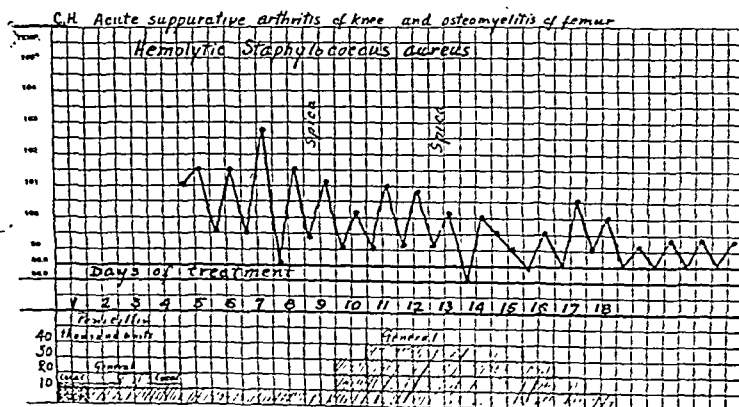 C.H. Acute suppurative arthritis of knee and osteomyelitis of femur
TEMP.
Hemolytic Staphylococcus aureus
103
102
101
100
99
Spica
Spica
Days of treatment
1 2 3 4 5 6 7 8 9 10 11 12 13 14 15 16 17 18
Penicillin
thousand units
40
30
20
10
General
General
Local
Local